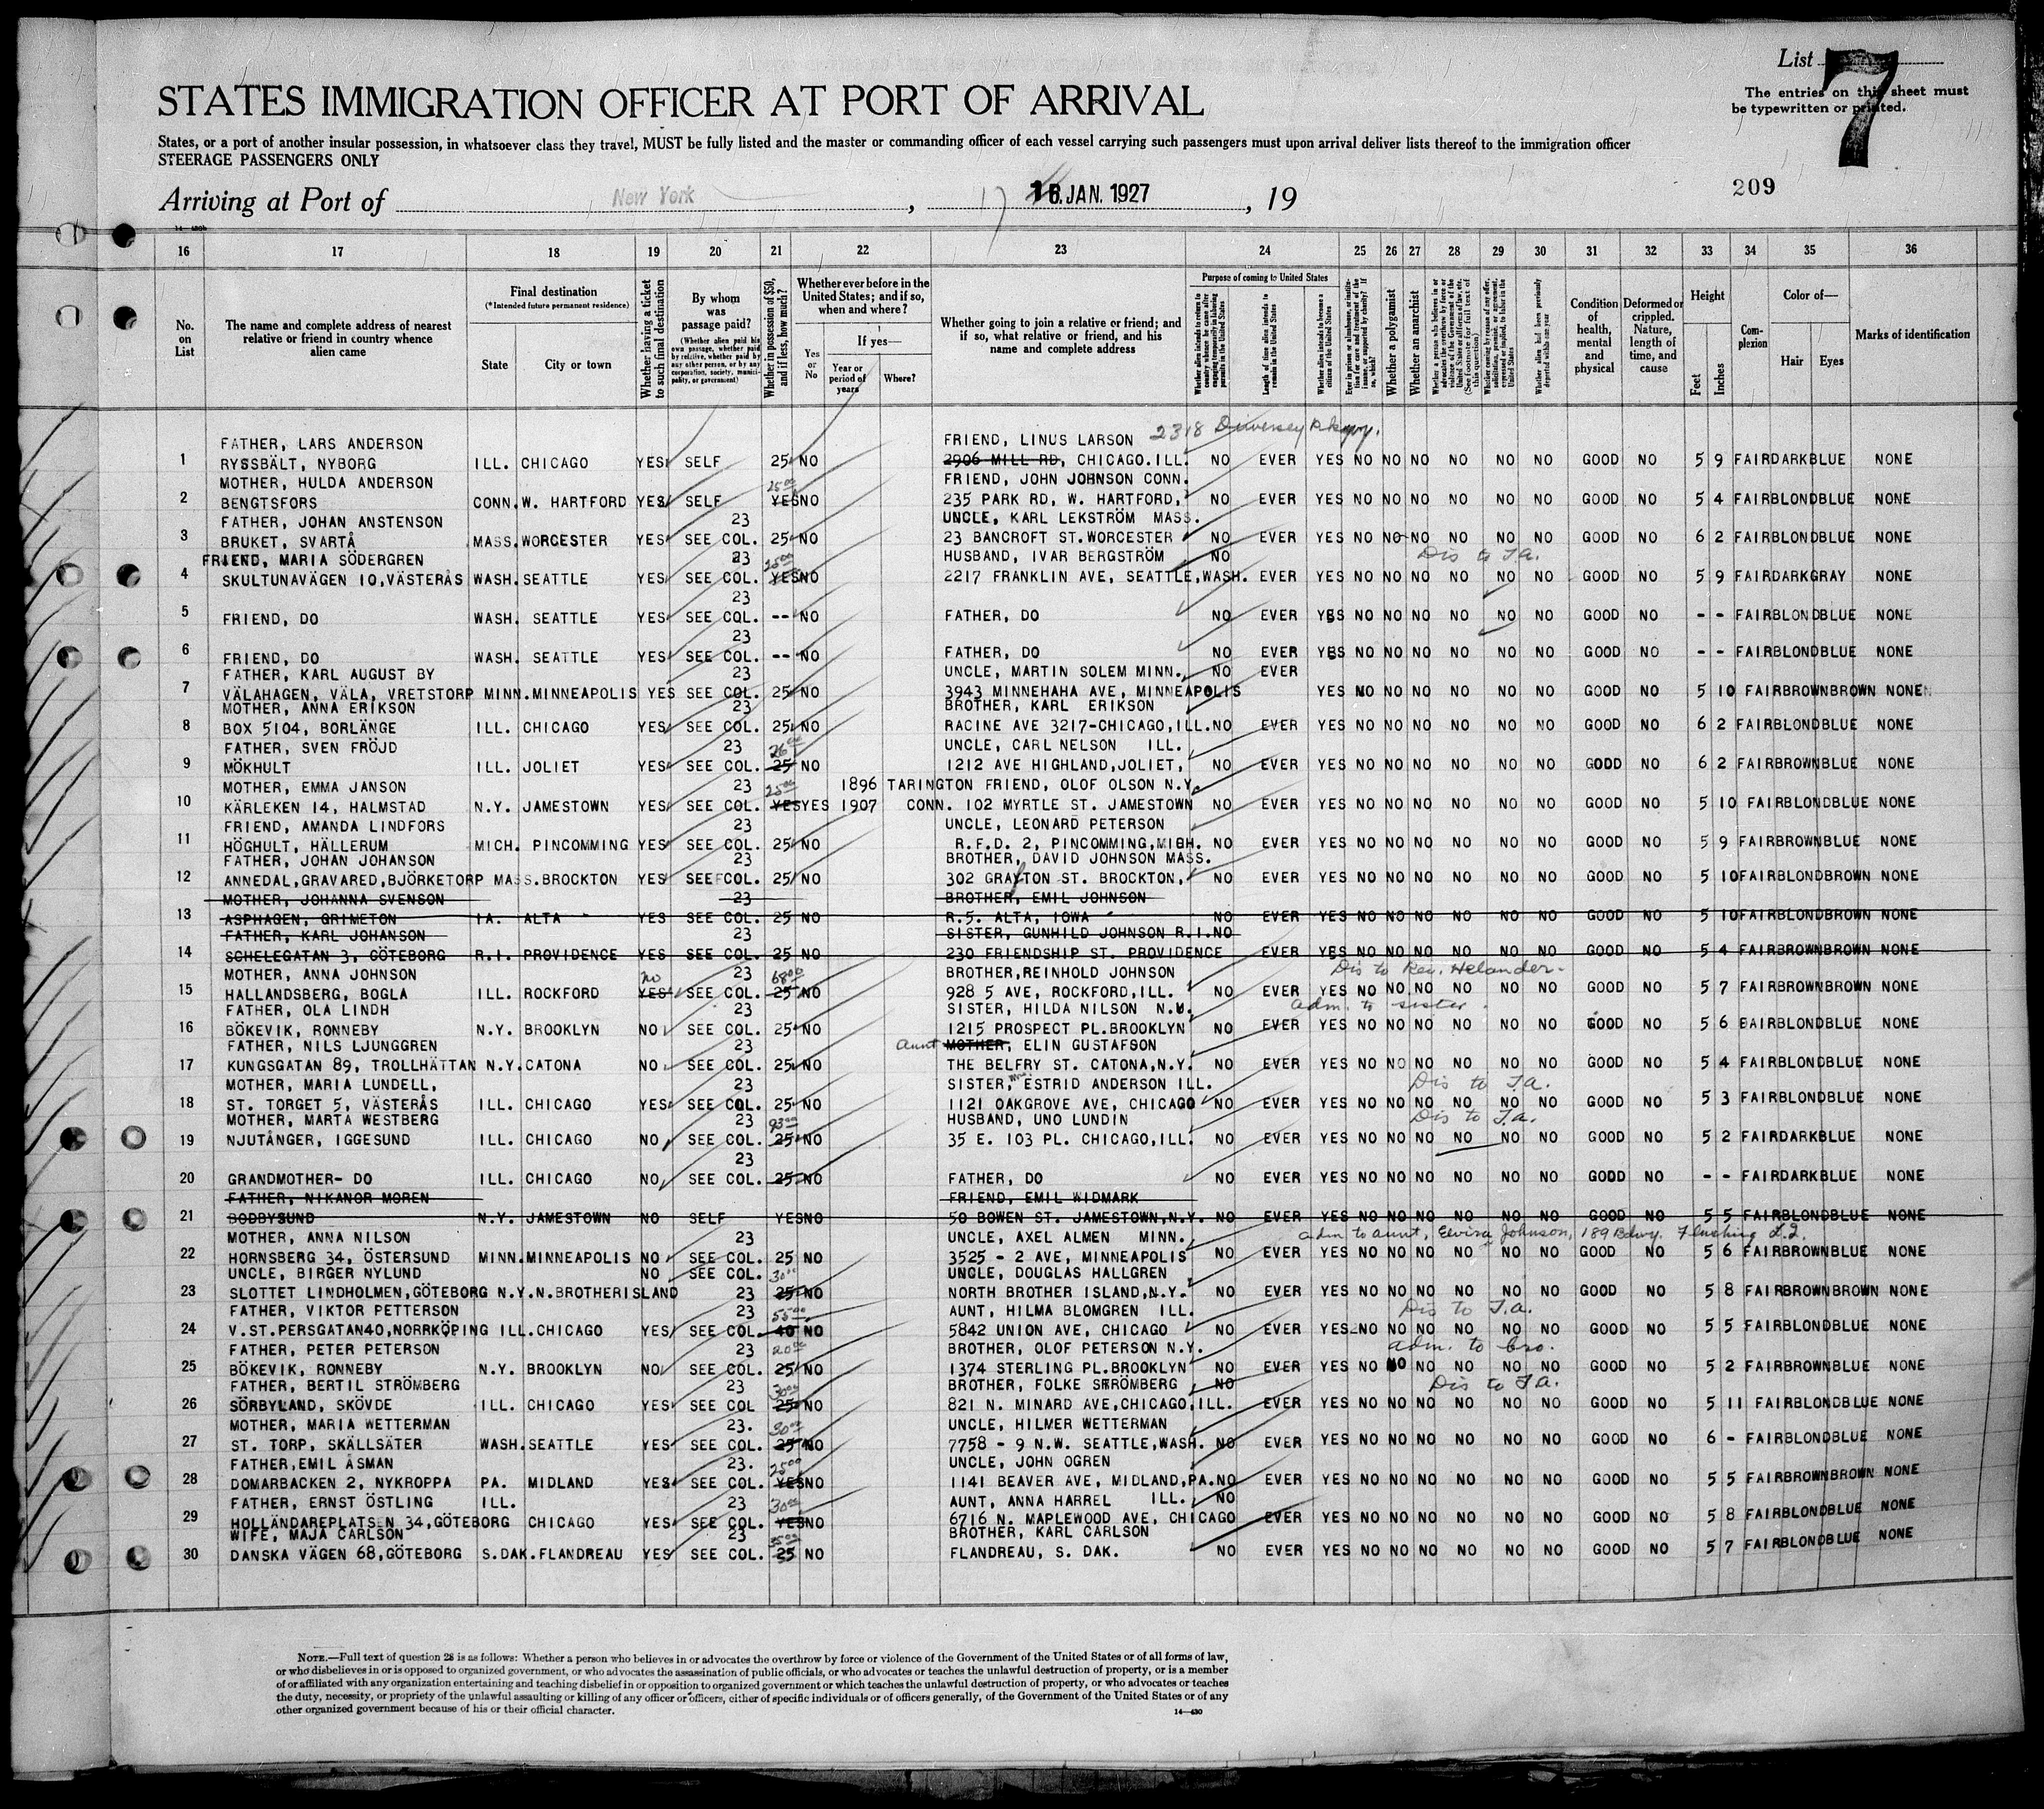 List 7
The entries on this sheet must
be typewritten or printed.
STATES IMMIGRATION OFFICER AT PORT OF ARRIVAL
States, or a port of another insular possession, in whatsoever class they travel, MUST be fully listed and the master or commanding officer of each vessel carrying such passengers must upon arrival deliver lists thereof to the immigration officer
STEERAGE PASSENGERS ONLY
209
Arriving at Port of New York, 17 16 JAN. 1927, 19
16 17 18 19 20 21 22 23 24 25 26 27 28 29 30 31 32 33 34 35 36
No. on List
The name and complete address of nearest relative or friend in country whence alien came
Final destination
(*Intended future permanent residence)
State
City or town
Whether having a ticket to such final destination
By whom was passage paid?
(Whether alien paid his own passage, whether paid by relative, whether paid by any other person, or by any corporation, society, municipality, or government)
Whether in possession of $50, and if less, how much?
Whether ever before in the United States; and if so, when and where?
Yes or No
If yes—
Year or period of years
Where?
Whether going to join a relative or friend; and if so, what relative or friend, and his name and complete address
Purpose of coming to United States
Length of time alien intends to remain in the United States
Whether alien intends to become a citizen of the United States
Whether a polygamist
Whether an anarchist
Condition of health, mental and physical
Deformed or crippled. Nature, length of time, and cause
Height
Feet
Inches
Complexion
Color of—
Hair
Eyes
Marks of identification
FATHER, LARS ANDERSON FRIEND, LINUS LARSON 2318 Diversey Pkwy.
1 RYSSBÄLT, NYBORG ILL. CHICAGO YES SELF 25 NO 2906 MILL RD, CHICAGO.ILL. NO EVER YES NO NO NO NO NO NO GOOD NO 5 9 FAIR DARK BLUE NONE
MOTHER, HULDA ANDERSON 25 00 FRIEND, JOHN JOHNSON CONN.
2 BENGTSFORS CONN. W. HARTFORD YES SELF YES NO 235 PARK RD, W. HARTFORD, NO EVER YES NO NO NO NO NO NO GOOD NO 5 4 FAIR BLOND BLUE NONE
FATHER, JOHAN ANSTENSON 23 UNCLE, KARL LEKSTRÖM MASS.
3 BRUKET, SVARTÅ MASS. WORCESTER YES SEE COL. 25 NO 23 BANCROFT ST. WORCESTER NO EVER YES NO NO NO NO NO NO GOOD NO 6 2 FAIR BLOND BLUE NONE
FRIEND, MARIA SÖDERGREN 23 25 00 HUSBAND, IVAR BERGSTRÖM NO Dis to T.a.
4 SKULTUNAVÄGEN 10, VÄSTERÅS WASH. SEATTLE YES SEE COL. YES NO 2217 FRANKLIN AVE, SEATTLE, WASH. EVER YES NO NO NO NO NO NO GOOD NO 5 9 FAIR DARK GRAY NONE
23
5 FRIEND, DO WASH. SEATTLE YES SEE COL. -- NO FATHER, DO NO EVER YES NO NO NO NO NO NO GOOD NO - - FAIR BLOND BLUE NONE
23
6 FRIEND, DO WASH. SEATTLE YES SEE COL. -- NO FATHER, DO NO EVER YES NO NO NO NO NO NO GOOD NO - - FAIR BLOND BLUE NONE
FATHER, KARL AUGUST BY 23 UNCLE, MARTIN SOLEM MINN. NO EVER
7 VÄLAHAGEN, VÄLA, VRETSTORP MINN. MINNEAPOLIS YES SEE COL. 25 NO 3943 MINNEHAHA AVE, MINNEAPOLIS YES NO NO NO NO NO NO GOOD NO 5 10 FAIR BROWN BROWN NONE
MOTHER, ANNA ERIKSON 23 BROTHER, KARL ERIKSON
8 BOX 5104, BORLÄNGE ILL. CHICAGO YES SEE COL. 25 NO RACINE AVE 3217-CHICAGO, ILL. NO EVER YES NO NO NO NO NO NO GOOD NO 6 2 FAIR BLOND BLUE NONE
FATHER, SVEN FRÖJD 23 26 00 UNCLE, CARL NELSON ILL.
9 MÖKHULT ILL. JOLIET YES SEE COL. 25 NO 1212 AVE HIGHLAND, JOLIET, NO EVER YES NO NO NO NO NO NO GODD NO 6 2 FAIR BROWN BLUE NONE
MOTHER, EMMA JANSON 23 25 00 1896 TARINGTON FRIEND, OLOF OLSON N.Y.
10 KÄRLEKEN 14, HALMSTAD N.Y. JAMESTOWN YES SEE COL. YES YES 1907 CONN. 102 MYRTLE ST. JAMESTOWN NO EVER YES NO NO NO NO NO NO GOOD NO 5 10 FAIR BLOND BLUE NONE
FRIEND, AMANDA LINDFORS 23 UNCLE, LEONARD PETERSON
11 HÖGHULT, HÄLLERUM MICH. PINCOMMING YES SEE COL. 25 NO R.F.D. 2, PINCOMMING, MICH. NO EVER YES NO NO NO NO NO NO GOOD NO 5 9 FAIR BROWN BLUE NONE
FATHER, JOHAN JOHANSON 23 BROTHER, DAVID JOHNSON MASS.
12 ANNEDAL, GRAVARED, BJÖRKETORP MASS. BROCKTON YES SEE COL. 25 NO 302 GRAFTON ST. BROCKTON, NO EVER YES NO NO NO NO NO NO GOOD NO 5 10 FAIR BLOND BROWN NONE
MOTHER, JOHANNA SVENSON 23 BROTHER, EMIL JOHNSON
13 ASPHAGEN, GRIMETON IA. ALTA YES SEE COL. 25 NO R.5. ALTA, IOWA NO EVER YES NO NO NO NO NO NO GOOD NO 5 10 FAIR BLOND BROWN NONE
FATHER, KARL JOHANSON 23 SISTER, GUNHILD JOHNSON R.I. NO
14 SCHELEGATAN 3, GÖTEBORG R.I. PROVIDENCE YES SEE COL. 25 NO 230 FRIENDSHIP ST. PROVIDENCE EVER YES NO NO NO NO NO NO GOOD NO 5 4 FAIR BROWN BROWN NONE
MOTHER, ANNA JOHNSON no 23 68 00 BROTHER, REINHOLD JOHNSON Dis to Rev. Helander-
15 HALLANDSBERG, BOGLA ILL. ROCKFORD YES SEE COL. 25 NO 928 5 AVE, ROCKFORD, ILL. NO EVER YES NO NO NO NO NO NO GOOD NO 5 7 FAIR BROWN BROWN NONE
FATHER, OLA LINDH 23 SISTER, HILDA NILSON N.Y. adm. to sister.
16 BÖKEVIK, RONNEBY N.Y. BROOKLYN NO SEE COL. 25 NO 1215 PROSPECT PL. BROOKLYN NO EVER YES NO NO NO NO NO NO GOOD NO 5 6 FAIR BLOND BLUE NONE
FATHER, NILS LJUNGGREN 23 aunt MOTHER, ELIN GUSTAFSON
17 KUNGSGATAN 89, TROLLHÄTTAN N.Y. CATONA NO SEE COL. 25 NO THE BELFRY ST. CATONA, N.Y. NO EVER YES NO NO NO NO NO NO GOOD NO 5 4 FAIR BLOND BLUE NONE
MOTHER, MARIA LUNDELL, 23 SISTER, Mrs ESTRID ANDERSON ILL. Dis to T.a.
18 ST. TORGET 5, VÄSTERÅS ILL. CHICAGO YES SEE COL. 25 NO 1121 OAKGROVE AVE, CHICAGO NO EVER YES NO NO NO NO NO NO GOOD NO 5 3 FAIR BLOND BLUE NONE
MOTHER, MARTA WESTBERG 23 93 00 HUSBAND, UNO LUNDIN Dis to T.a.
19 NJUTÅNGER, IGGESUND ILL. CHICAGO NO SEE COL. 25 NO 35 E. 103 PL. CHICAGO, ILL. NO EVER YES NO NO NO NO NO NO GOOD NO 5 2 FAIR DARK BLUE NONE
23
20 GRANDMOTHER- DO ILL. CHICAGO NO SEE COL. 25 NO FATHER, DO NO EVER YES NO NO NO NO NO NO GOOD NO - - FAIR DARK BLUE NONE
FATHER, NIKANOR MOREN FRIEND, EMIL WIDMARK
21 BODBYSUND N.Y. JAMESTOWN NO SELF YES NO 50 BOWEN ST. JAMESTOWN, N.Y. NO EVER YES NO NO NO NO NO NO GOOD NO 5 5 FAIR BLOND BLUE NONE
MOTHER, ANNA NILSON 23 UNCLE, AXEL ALMEN MINN. adm to aunt, Elvira Johnson, 189 Bdwy. Flushing L.I.
22 HORNSBERG 34, ÖSTERSUND MINN. MINNEAPOLIS NO SEE COL. 25 NO 3525 - 2 AVE, MINNEAPOLIS NO EVER YES NO NO NO NO NO NO GOOD NO 5 6 FAIR BROWN BLUE NONE
UNCLE, BIRGER NYLUND NO SEE COL. 30 00 UNCLE, DOUGLAS HALLGREN
23 SLOTTET LINDHOLMEN, GÖTEBORG N.Y. N. BROTHER ISLAND 23 25 NO NORTH BROTHER ISLAND, N.Y. NO EVER YES NO NO NO NO NO NO GOOD NO 5 8 FAIR BROWN BROWN NONE
FATHER, VIKTOR PETTERSON 23 55 00 AUNT, HILMA BLOMGREN ILL. Dis to T.a.
24 V. ST. PERSGATAN 40, NORRKÖPING ILL. CHICAGO YES SEE COL. 40 NO 5842 UNION AVE, CHICAGO NO EVER YES NO NO NO NO NO NO GOOD NO 5 5 FAIR BLOND BLUE NONE
FATHER, PETER PETERSON 23 20 00 BROTHER, OLOF PETERSON N.Y. adm. to bro.
25 BÖKEVIK, RONNEBY N.Y. BROOKLYN NO SEE COL. 25 NO 1374 STERLING PL. BROOKLYN NO EVER YES NO NO NO NO NO NO GOOD NO 5 2 FAIR BROWN BLUE NONE
FATHER, BERTIL STRÖMBERG 23 30 00 BROTHER, FOLKE STRÖMBERG NO Dis to T.a.
26 SÖRBYLAND, SKÖVDE ILL. CHICAGO YES SEE COL 25 NO 821 N. MINARD AVE, CHICAGO, ILL. EVER YES NO NO NO NO NO NO GOOD NO 5 11 FAIR BLOND BLUE NONE
MOTHER, MARIA WETTERMAN 23. 30 00 UNCLE, HILMER WETTERMAN
27 ST. TORP, SKÄLLSÄTER WASH. SEATTLE YES SEE COL. 25 NO 7758 - 9 N.W. SEATTLE, WASH. NO EVER YES NO NO NO NO NO NO GOOD NO 6 - FAIR BLOND BLUE NONE
FATHER, EMIL ÅSMAN 23. 25 00 UNCLE, JOHN OGREN
28 DOMARBACKEN 2, NYKROPPA PA. MIDLAND YES SEE COL. YES NO 1141 BEAVER AVE, MIDLAND, PA. NO EVER YES NO NO NO NO NO NO GOOD NO 5 5 FAIR BROWN BROWN NONE
FATHER, ERNST ÖSTLING ILL. 23 30 00 AUNT, ANNA HARREL ILL. NO
29 HOLLÄNDAREPLATSEN 34, GÖTEBORG CHICAGO YES SEE COL. YES NO 6716 N. MAPLEWOOD AVE, CHICAGO EVER YES NO NO NO NO NO NO GOOD NO 5 8 FAIR BLOND BLUE NONE
WIFE, MAJA CARLSON 23 35 00 BROTHER, KARL CARLSON
30 DANSKA VÄGEN 68, GÖTEBORG S.DAK. FLANDREAU YES SEE COL. 25 NO FLANDREAU, S. DAK. NO EVER YES NO NO NO NO NO NO GOOD NO 5 7 FAIR BLOND BLUE NONE
NOTE.—Full text of question 28 is as follows: Whether a person who believes in or advocates the overthrow by force or violence of the Government of the United States or of all forms of law,
or who disbelieves in or is opposed to organized government, or who advocates the assassination of public officials, or who advocates or teaches the unlawful destruction of property, or is a member
of or affiliated with any organization entertaining and teaching disbelief in or opposition to organized government or which teaches the unlawful destruction of property, or who advocates or teaches
the duty, necessity, or propriety of the unlawful assaulting or killing of any officer or officers, either of specific individuals or of officers generally, of the Government of the United States or of any
other organized government because of his or their official character.
14—430